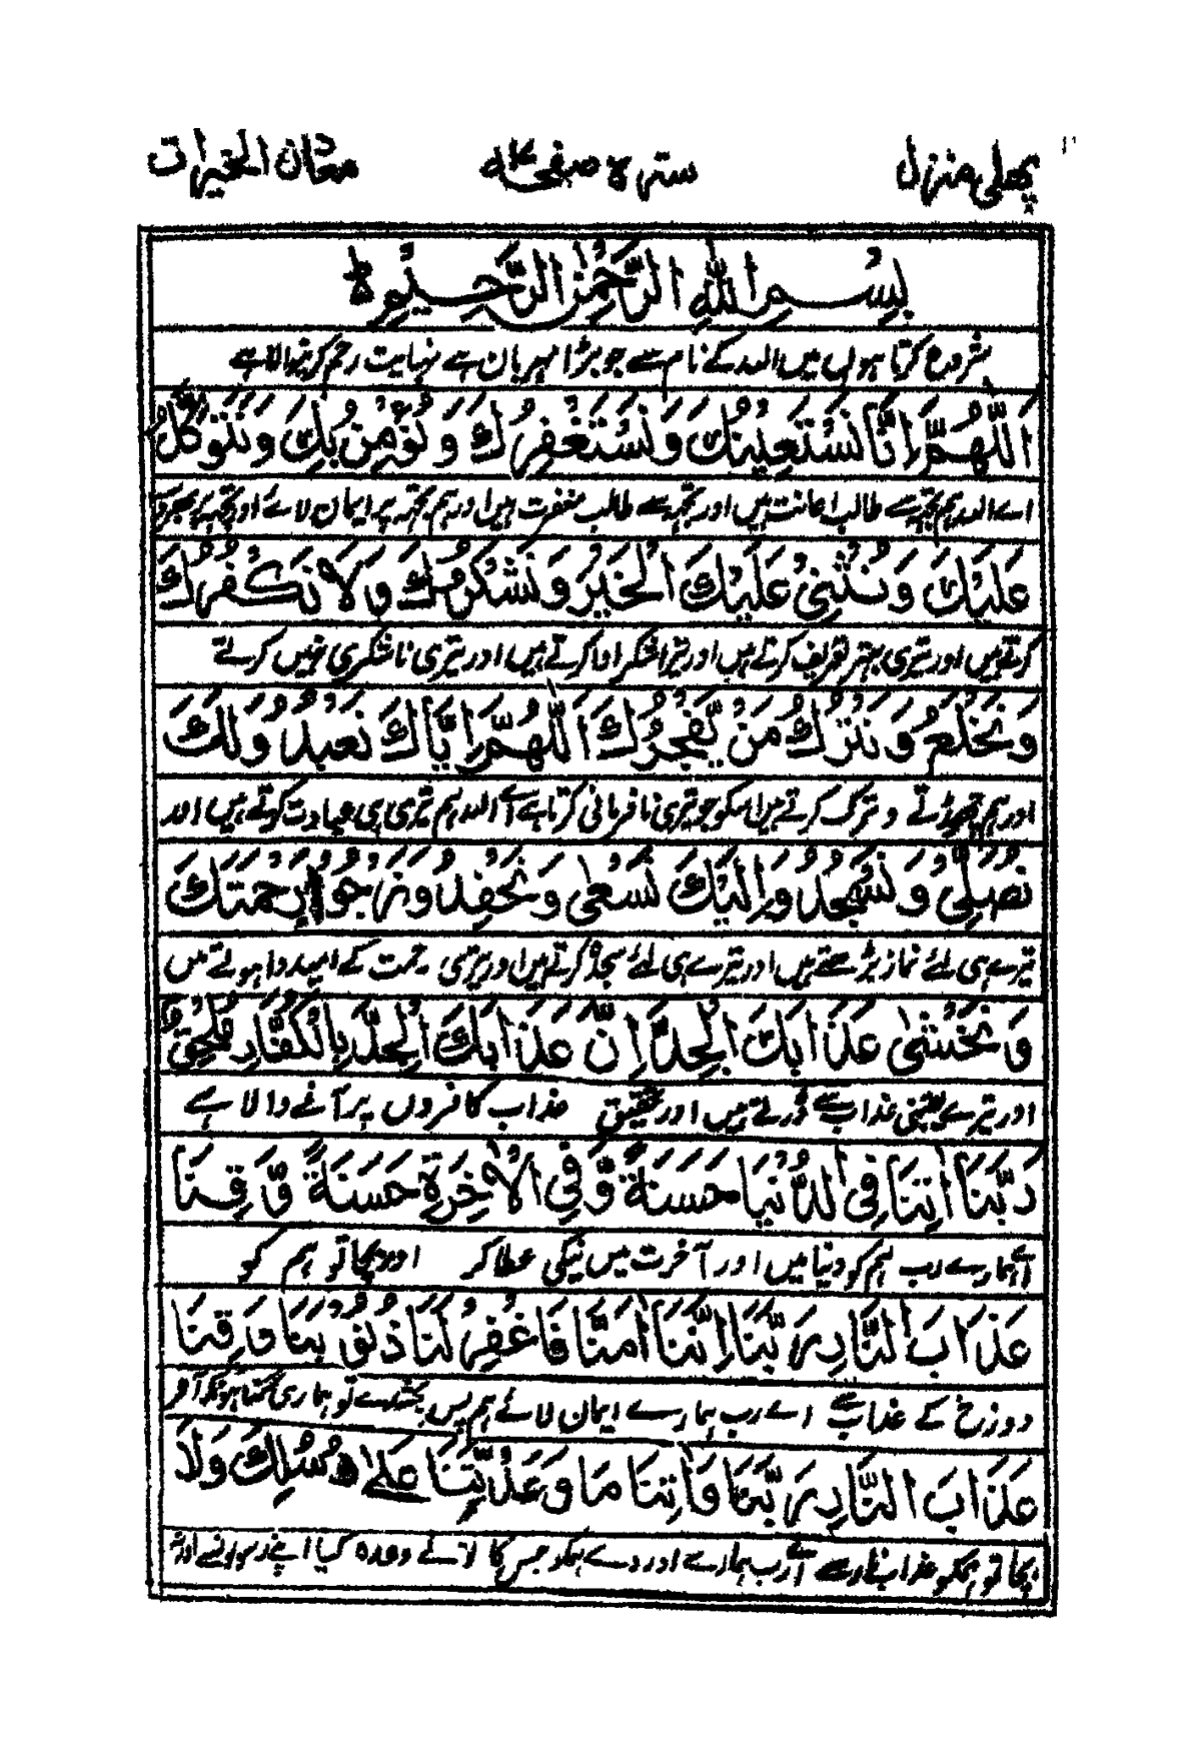 پہلی منزل سترہ صفحہ ۱۷ معدن الخیرات
بِسْمِ اللّٰهِ الرَّحْمٰنِ الرَّحِیْمِ ط
شروع کرتا ہوں میں اللہ کے نام سے جو بڑا مہربان ہے نہایت رحم کرنیوالا ہے
اَللّٰهُمَّ اِنَّا نَسْتَعِیْنُكَ وَنَسْتَغْفِرُكَ وَنُؤْمِنُ بِكَ وَنَتَوَكَّلُ
اے اللہ ہم تجھ سے طالب اعانت ہیں اور تجھ سے طالب مغفرت ہیں اور ہم تجھ پر ایمان لائے اور تجھ پر بھروسہ
عَلَیْكَ وَنُثْنِیْ عَلَیْكَ الْخَیْرَ وَنَشْكُرُكَ وَلَا نَكْفُرُكَ
کرتے ہیں اور تیری بہتر تعریف کرتے ہیں اور تیرا شکر ادا کرتے ہیں اور تیری ناشکری نہیں کرتے
وَنَخْلَعُ وَنَتْرُكُ مَنْ یَّفْجُرُكَ اَللّٰهُمَّ اِیَّاكَ نَعْبُدُ وَلَكَ
اور ہم چھوڑتے و ترک کرتے ہیں اسکو جو تیری نافرمانی کرتا ہے اے اللہ ہم تیری ہی عبادت کرتے ہیں اور
نُصَلِّیْ وَنَسْجُدُ وَاِلَیْكَ نَسْعٰی وَنَحْفِدُ وَنَرْجُوْا رَحْمَتَكَ
تیرے ہی لئے نماز پڑھتے ہیں اور تیرے ہی لئے سجدہ کرتے ہیں اور تیری رحمت کے امیدوار ہوتے ہیں
وَنَخْشٰی عَذَابَكَ الْجِدَّ اِنَّ عَذَابَكَ الْجِدَّ بِالْكُفَّارِ مُلْحِقٌ
اور تیرے یقینی عذاب سے ڈرتے ہیں اور تحقیق عذاب کافروں پر آنے والا ہے
رَبَّنَا اٰتِنَا فِی الدُّنْیَا حَسَنَةً وَّفِی الْاٰخِرَةِ حَسَنَةً وَّقِنَا
اے ہمارے رب ہم کو دنیا میں اور آخرت میں نیکی عطا کر اور بچا تو ہم کو
عَذَابَ النَّارِ رَبَّنَا اِنَّنَا اٰمَنَّا فَاغْفِرْ لَنَا ذُنُوْبَنَا وَقِنَا
دوزخ کے عذاب سے اے رب ہمارے ایمان لائے ہم پس بخشدے تو ہماری
عَذَابَ النَّارِ رَبَّنَا وَاٰتِنَا مَا وَعَدْتَّنَا عَلٰی رُسُلِكَ وَلَا
بچا تو ہمکو عذاب نار سے اے رب ہمارے اور دے ہمکو جس کا وعدہ کیا اپنے